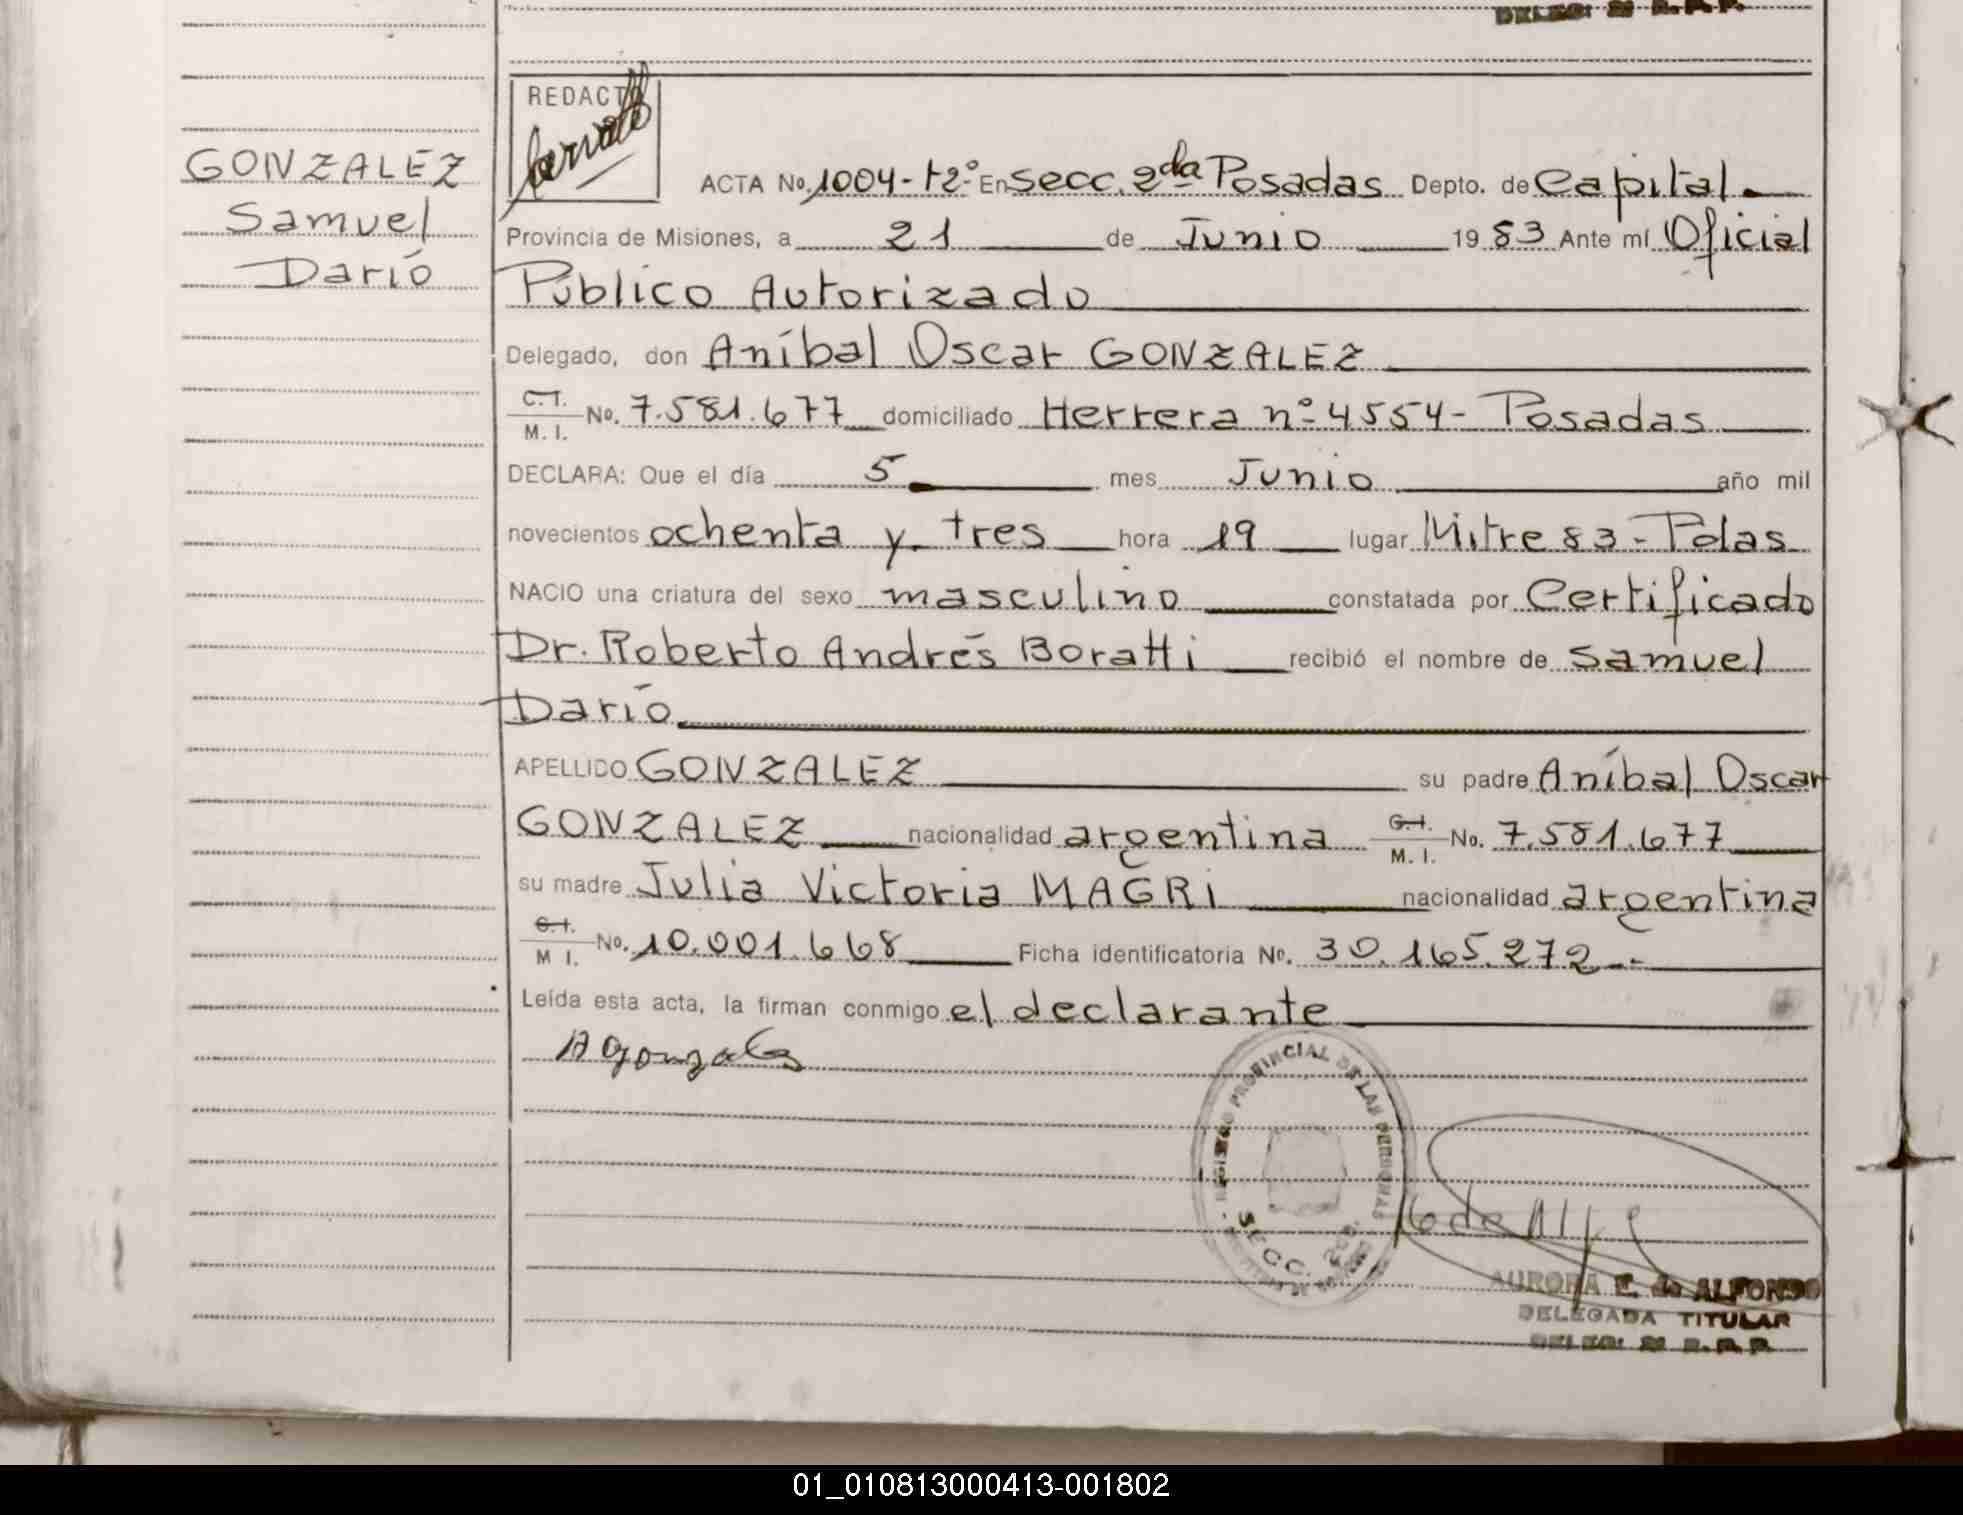 DELEG: 2ª R. P. P.
REDACTO
GONZALEZ
Samuel
Darío
ACTA No. 1004-t2º En Secc. 2da Posadas Depto. de Capital
Provincia de Misiones, a 21 de Junio 1983 Ante mí Oficial
Público Autorizado
Delegado, don Aníbal Oscar GONZALEZ
C.I.
M. I. No. 7.581.677 domiciliado Herrera nº 4554 - Posadas
DECLARA: Que el día 5 mes Junio año mil
novecientos ochenta y tres hora 19 lugar Mitre 83 - Pdas
NACIO una criatura del sexo masculino constatada por Certificado
Dr. Roberto Andrés Boratti recibió el nombre de Samuel
Darío
APELLIDO GONZALEZ su padre Aníbal Oscar
GONZALEZ nacionalidad argentina C.I. M. I. No. 7.581.677
su madre Julia Victoria MAGRI nacionalidad argentina
C.I.
M I. No. 10.001.668 Ficha identificatoria No. 30.165.272
Leída esta acta, la firman conmigo el declarante
A Gonzalez
REGISTRO PROVINCIAL DE LAS PERSONAS
SECC. 2da.
AURORA E. de ALFONSO
DELEGADA TITULAR
DELEG: 2ª R. P. P.
01_010813000413-001802